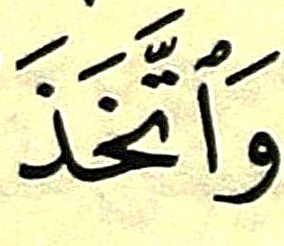 وَٱتَّخَذَ